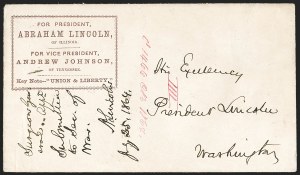 FOR PRESIDENT,
ABRAHAM LINCOLN,
OF ILLINOIS.
FOR VICE PRESIDENT,
ANDREW JOHNSON,
OF TENNESSEE.
Key Note—"UNION & LIBERTY."
Submitted
to Sec. of
War.
A. Lincoln
July 25, 1864.
His Excellency
President Lincoln
Washington